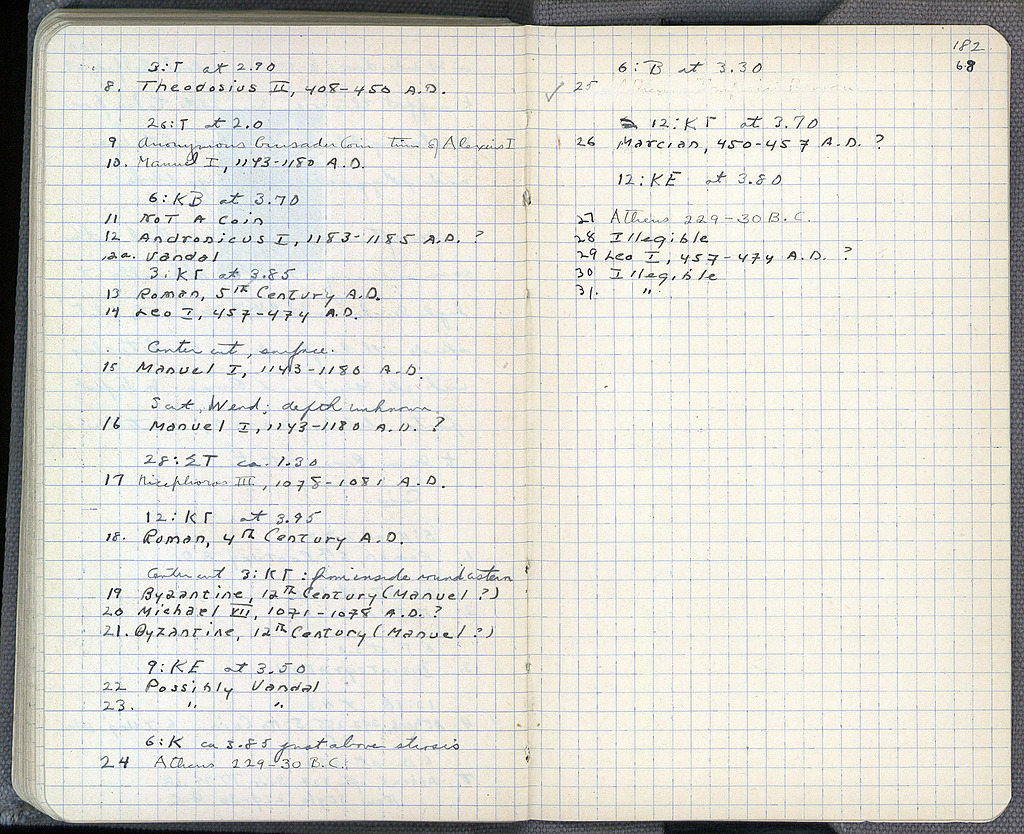 3:Τ at 2.90
8. Theodosius II, 408-450 A.D.
26:Τ at 2.0
9 Anonymous Crusader Coin Time of Alexius I
10. Manuel I, 1143-1180 A.D.
6:ΚΒ at 3.70
11 Not A Coin
12 Andronicus I, 1183-1185 A.D. ?
12a. Vandal
3:ΚΓ at 3.85
13 Roman, 5th Century A.D.
14 Leo I, 457-474 A.D.
Center cut, surface.
15 Manuel I, 1143-1180 A.D.
Sat, Wend; depth unknown
16 Manuel I, 1143-1180 A.D. ?
28:ΣΤ ca. 1.30
17 Nicephoros III, 1078-1081 A.D.
12:ΚΓ at 3.95
18. Roman, 4th Century A.D.
Center cut 3:ΚΓ: from inside round cistern
19 Byzantine, 12th Century (Manuel?)
20 Michael VII, 1071-1078 A.D. ?
21. Byzantine, 12th Century (Manuel?)
9:ΚΕ at 3.50
22 Possibly Vandal
23. " "
6:Κ ca 3.85 just above
24 Athens 229-30 B.C.
182
68
6:Β at 3.30
✓ 25
12:ΚΓ at 3.70
26 Marcian, 450-457 A.D. ?
12:ΚΕ at 3.80
27 Athens 229-30 B.C.
28 Illegible
29 Leo I, 457-474 A.D. ?
30 Illegible
31. "